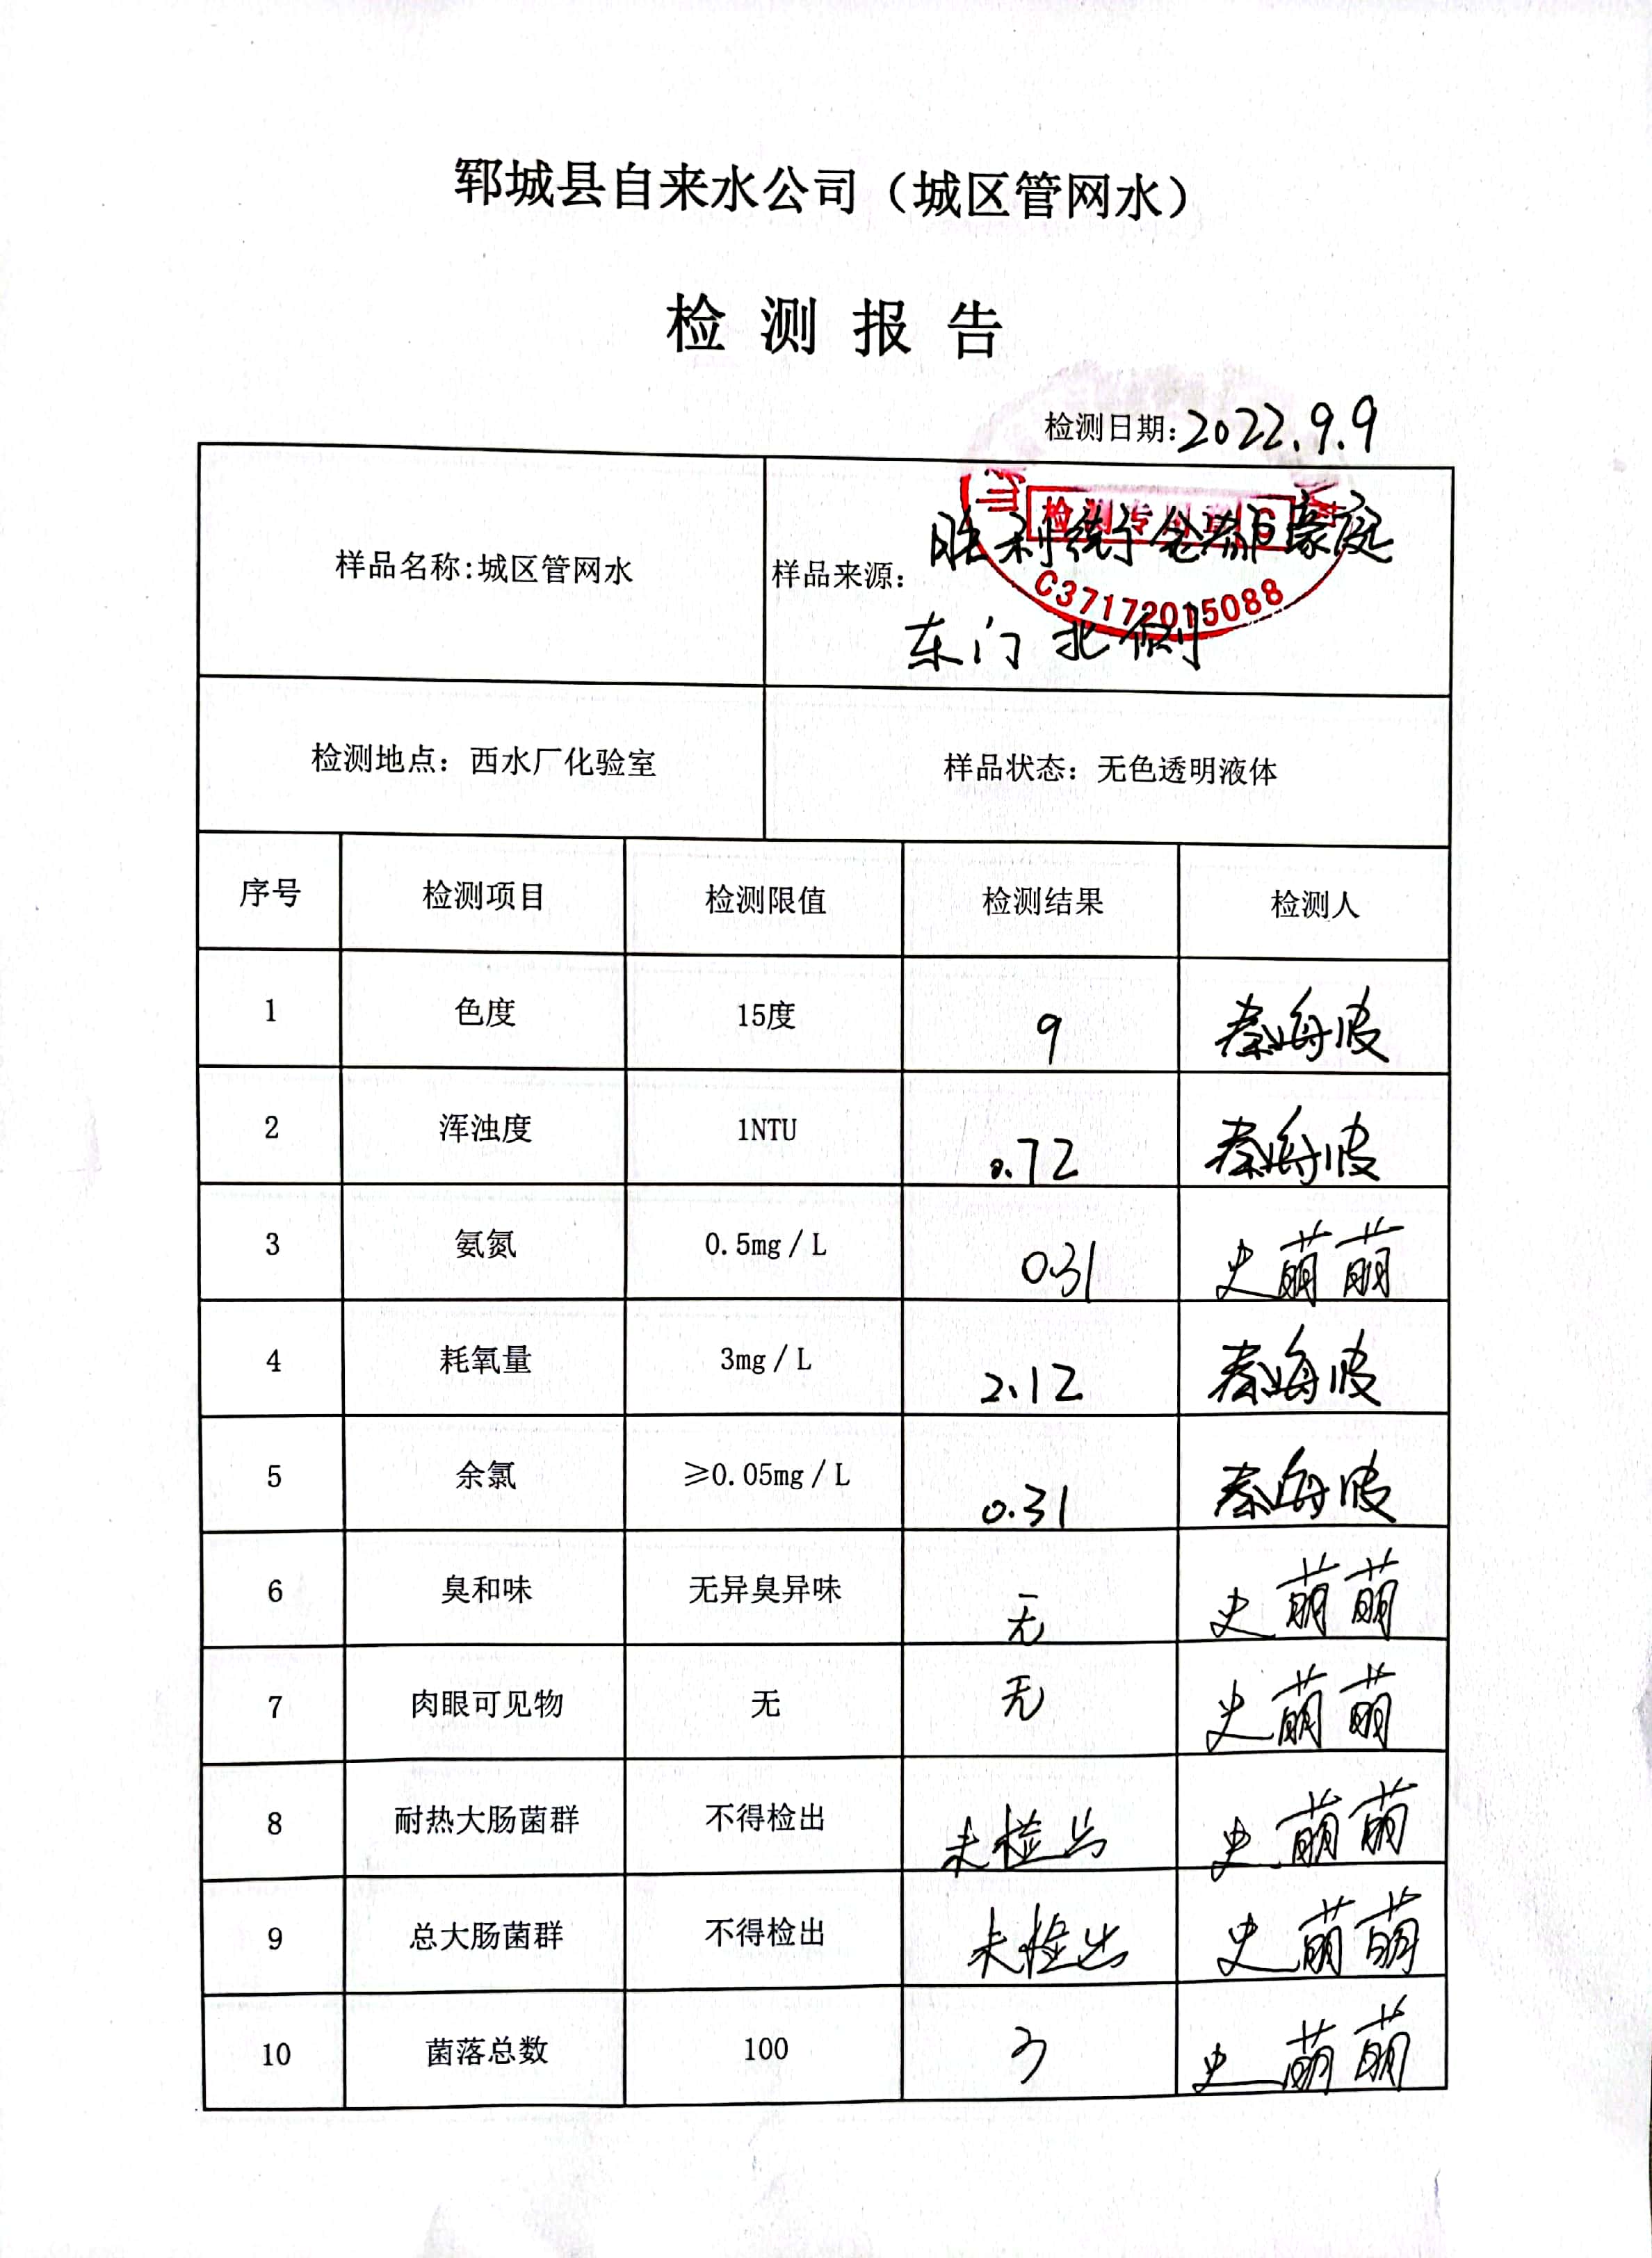 郓城县自来水公司（城区管网水）
检测报告
检测日期:2022.9.9
样品名称:城区管网水
样品来源: 胜利街 豪庭
东门北侧
检测专用章
C37172015088
检测地点: 西水厂化验室 样品状态: 无色透明液体
序号 检测项目 检测限值 检测结果 检测人
1 色度 15度 9 秦海波
2 浑浊度 1NTU 0.72 秦海波
3 氨氮 0.5mg/L 0.31 史萌萌
4 耗氧量 3mg/L 2.12 秦海波
5 余氯 ≥0.05mg/L 0.31 秦海波
6 臭和味 无异臭异味 无 史萌萌
7 肉眼可见物 无 无 史萌萌
8 耐热大肠菌群 不得检出 未检出 史萌萌
9 总大肠菌群 不得检出 未检出 史萌萌
10 菌落总数 100 史萌萌